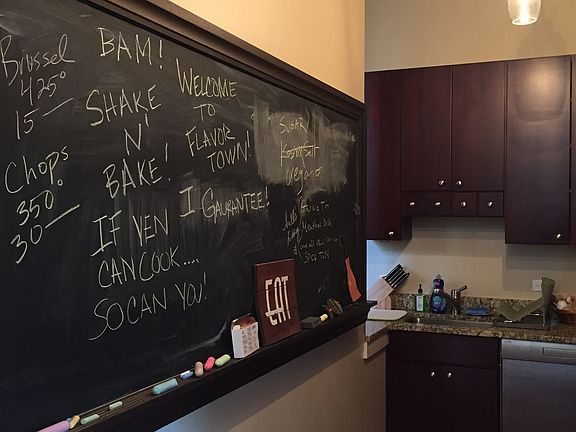 Brussel
425°
15 —
Chops
350°
30 —
BAM!
SHAKE
N'
BAKE!
IF VEN
CAN COOK....
SO CAN YOU!
WELCOME
TO
FLAVOR
TOWN!
I GAURANTEE!
SUGAR
Kosher Salt
oregano
EAT